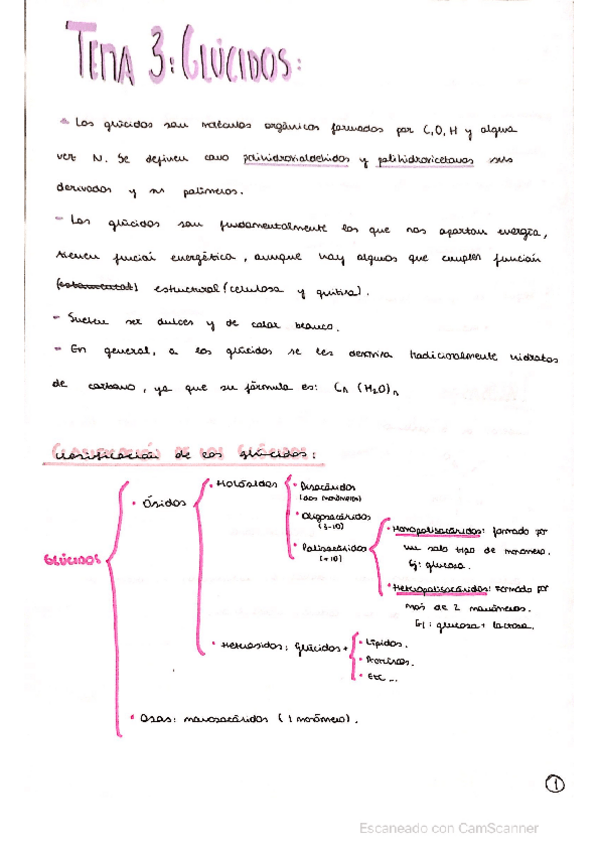 TEMA 3: GLÚCIDOS:
- Los glúcidos son moléculas orgánicas formados por C, O, H y alguna
vez N. Se definen como polihidroxialdehidos y polihidroxicetonas sus
derivados y sus polímeros.
- Los glúcidos son fundamentalmente los que nos aportan energía,
tienen función energética, aunque hay algunos que cumplen función
estructural (celulosa y quitina).
- Suelen ser dulces y de color blanco.
- En general, a los glúcidos se les denomina tradicionalmente hidratos
de carbono, ya que su fórmula es: Cn (H2O)n
Clasificación de los glúcidos:
GLÚCIDOS
• Ósidos
• Holósidos
• Disacáridos
(dos monómeros)
• Oligosacáridos
(3-10)
• Polisacáridos
(+10)
• Homopolisacáridos: formado por
un solo tipo de monómero.
Ej: glucosa.
• Heteropolisacáridos: formado por
más de 2 monómeros.
Ej: glucosa + lactosa.
• Heterosidos: glúcidos +
• Lípidos.
• Proteínas.
• Etc ...
• Osas: monosacáridos (1 monómero).
1
Escaneado con CamScanner